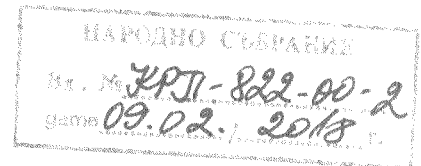 НАРОДНО СЪБРАНИЕ
Вх. № КРП-822-00-2
дата 09.02./2018 г.